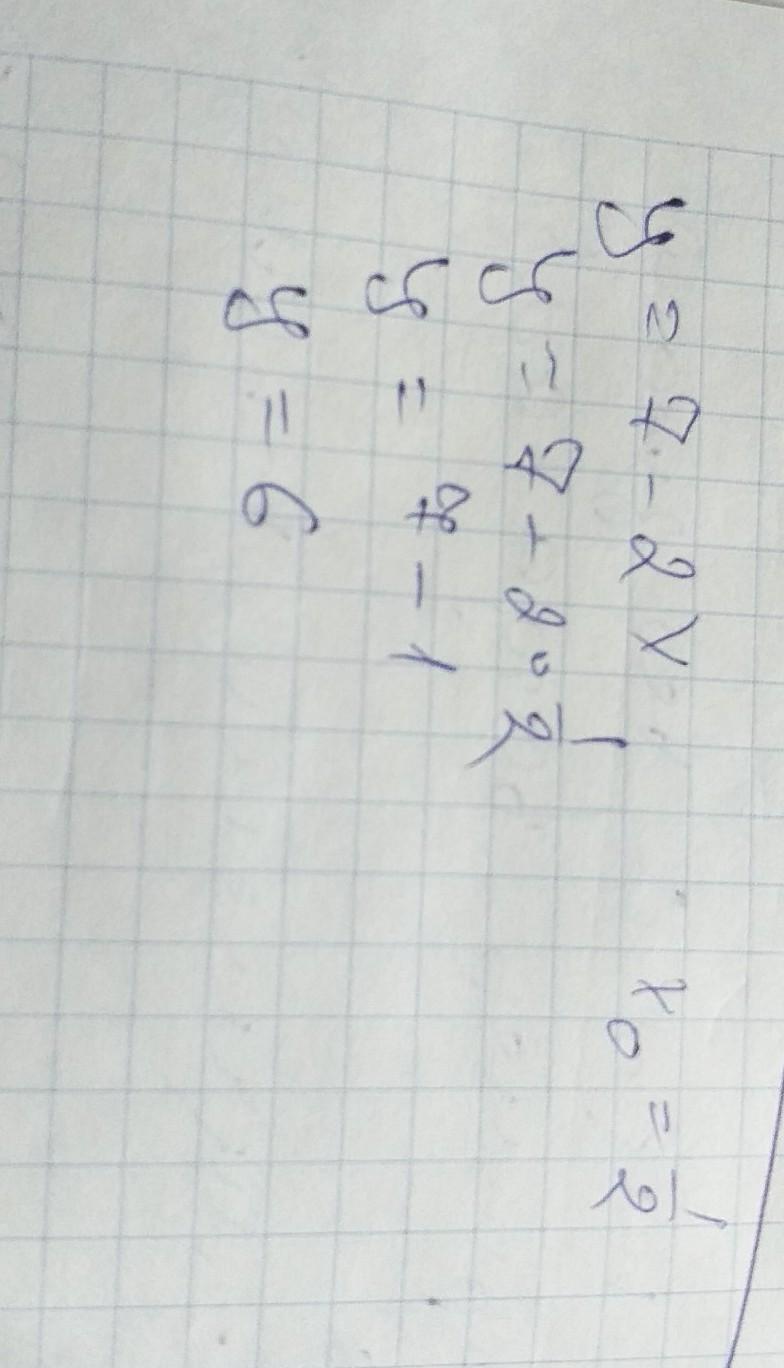 y = 7 - 2x x₀ = 1/2
y = 7 - 2 · 1/2
y = 7 - 1
y = 6